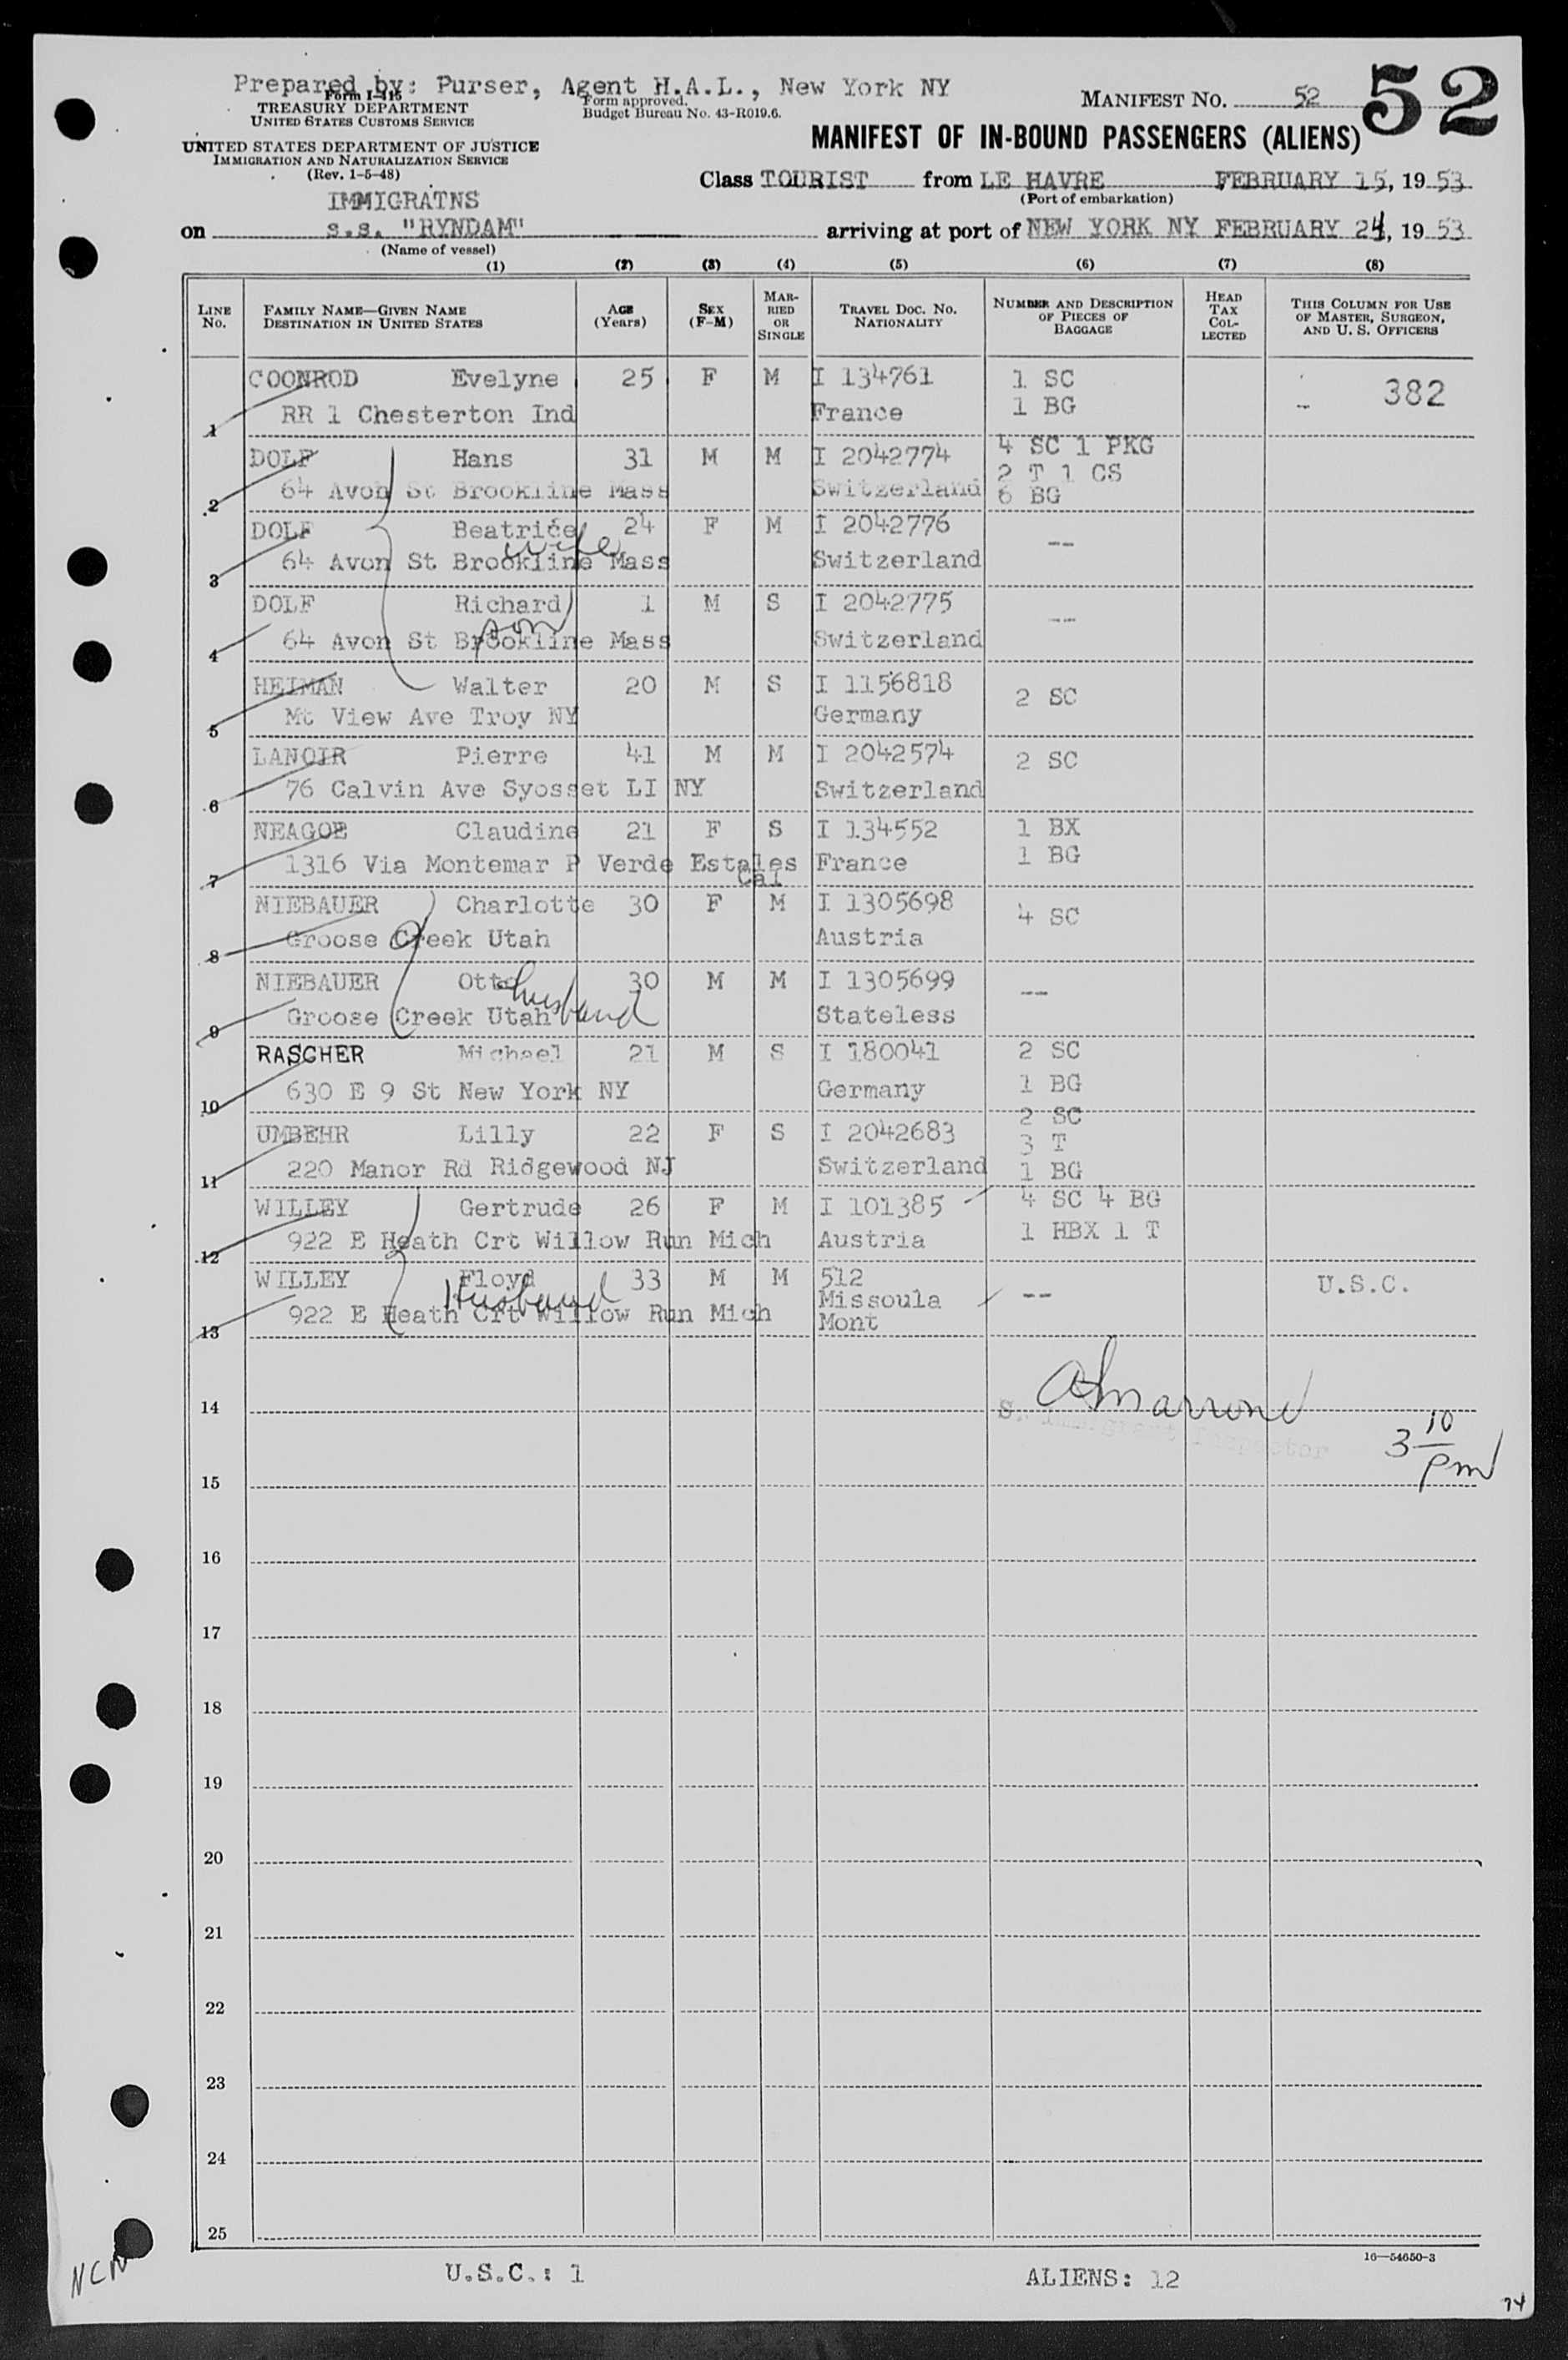 Prepared by: Purser, Agent H.A.L., New York NY
Form I-415
TREASURY DEPARTMENT
UNITED STATES CUSTOMS SERVICE
Form approved.
Budget Bureau No. 43-R019.6.
MANIFEST NO. 52
52
UNITED STATES DEPARTMENT OF JUSTICE
IMMIGRATION AND NATURALIZATION SERVICE
(Rev. 1-5-48)
MANIFEST OF IN-BOUND PASSENGERS (ALIENS)
Class TOURIST from LE HAVRE FEBRUARY 15, 1953
(Port of embarkation)
IMMIGRATNS
on s.s. "RYNDAM" arriving at port of NEW YORK NY FEBRUARY 24, 1953
(Name of vessel)
(1) (2) (3) (4) (5) (6) (7) (8)
LINE No. FAMILY NAME—GIVEN NAME DESTINATION IN UNITED STATES AGE (Years) SEX (F-M) MARRIED OR SINGLE TRAVEL DOC. NO. NATIONALITY NUMBER AND DESCRIPTION OF PIECES OF BAGGAGE HEAD TAX COLLECTED THIS COLUMN FOR USE OF MASTER, SURGEON, AND U. S. OFFICERS
COONROD Evelyne 25 F M I 134761 1 SC 382
1 RR 1 Chesterton Ind France 1 BG
DOLF Hans 31 M M I 2042774 4 SC 1 PKG
2 T 1 CS
2 64 Avon St Brookline Mass Switzerland 6 BG
DOLF Beatrice 24 F M I 2042776 --
wife
3 64 Avon St Brookline Mass Switzerland
DOLF Richard 1 M S I 2042775 --
son
4 64 Avon St Brookline Mass Switzerland
HEIMAN Walter 20 M S I 1156818 2 SC
5 Mt View Ave Troy NY Germany
LANOIR Pierre 41 M M I 2042574 2 SC
6 76 Calvin Ave Syosset LI NY Switzerland
NEAGOE Claudine 21 F S I 134552 1 BX
7 1316 Via Montemar P Verde Estales France 1 BG
Cal
NIEBAUER Charlotte 30 F M I 1305698 4 SC
8 Groose Creek Utah Austria
NIEBAUER Otto 30 M M I 1305699 --
husband
9 Groose Creek Utah Stateless
RASCHER Michael 21 M S I 180041 2 SC
10 630 E 9 St New York NY Germany 1 BG
2 SC
UMBEHR Lilly 22 F S I 2042683 3 T
11 220 Manor Rd Ridgewood NJ Switzerland 1 BG
WILLEY Gertrude 26 F M I 101385 4 SC 4 BG
12 922 E Heath Crt Willow Run Mich Austria 1 HBX 1 T
WILLEY Floyd 33 M M 512 -- U.S.C.
Husband
13 922 E Heath Crt Willow Run Mich Missoula
Mont
14
S. Immigrant Inspector
3 10 pm
15
16
17
18
19
20
21
22
23
24
25
16—54650-3
U.S.C.: 1 ALIENS: 12
NCN
74